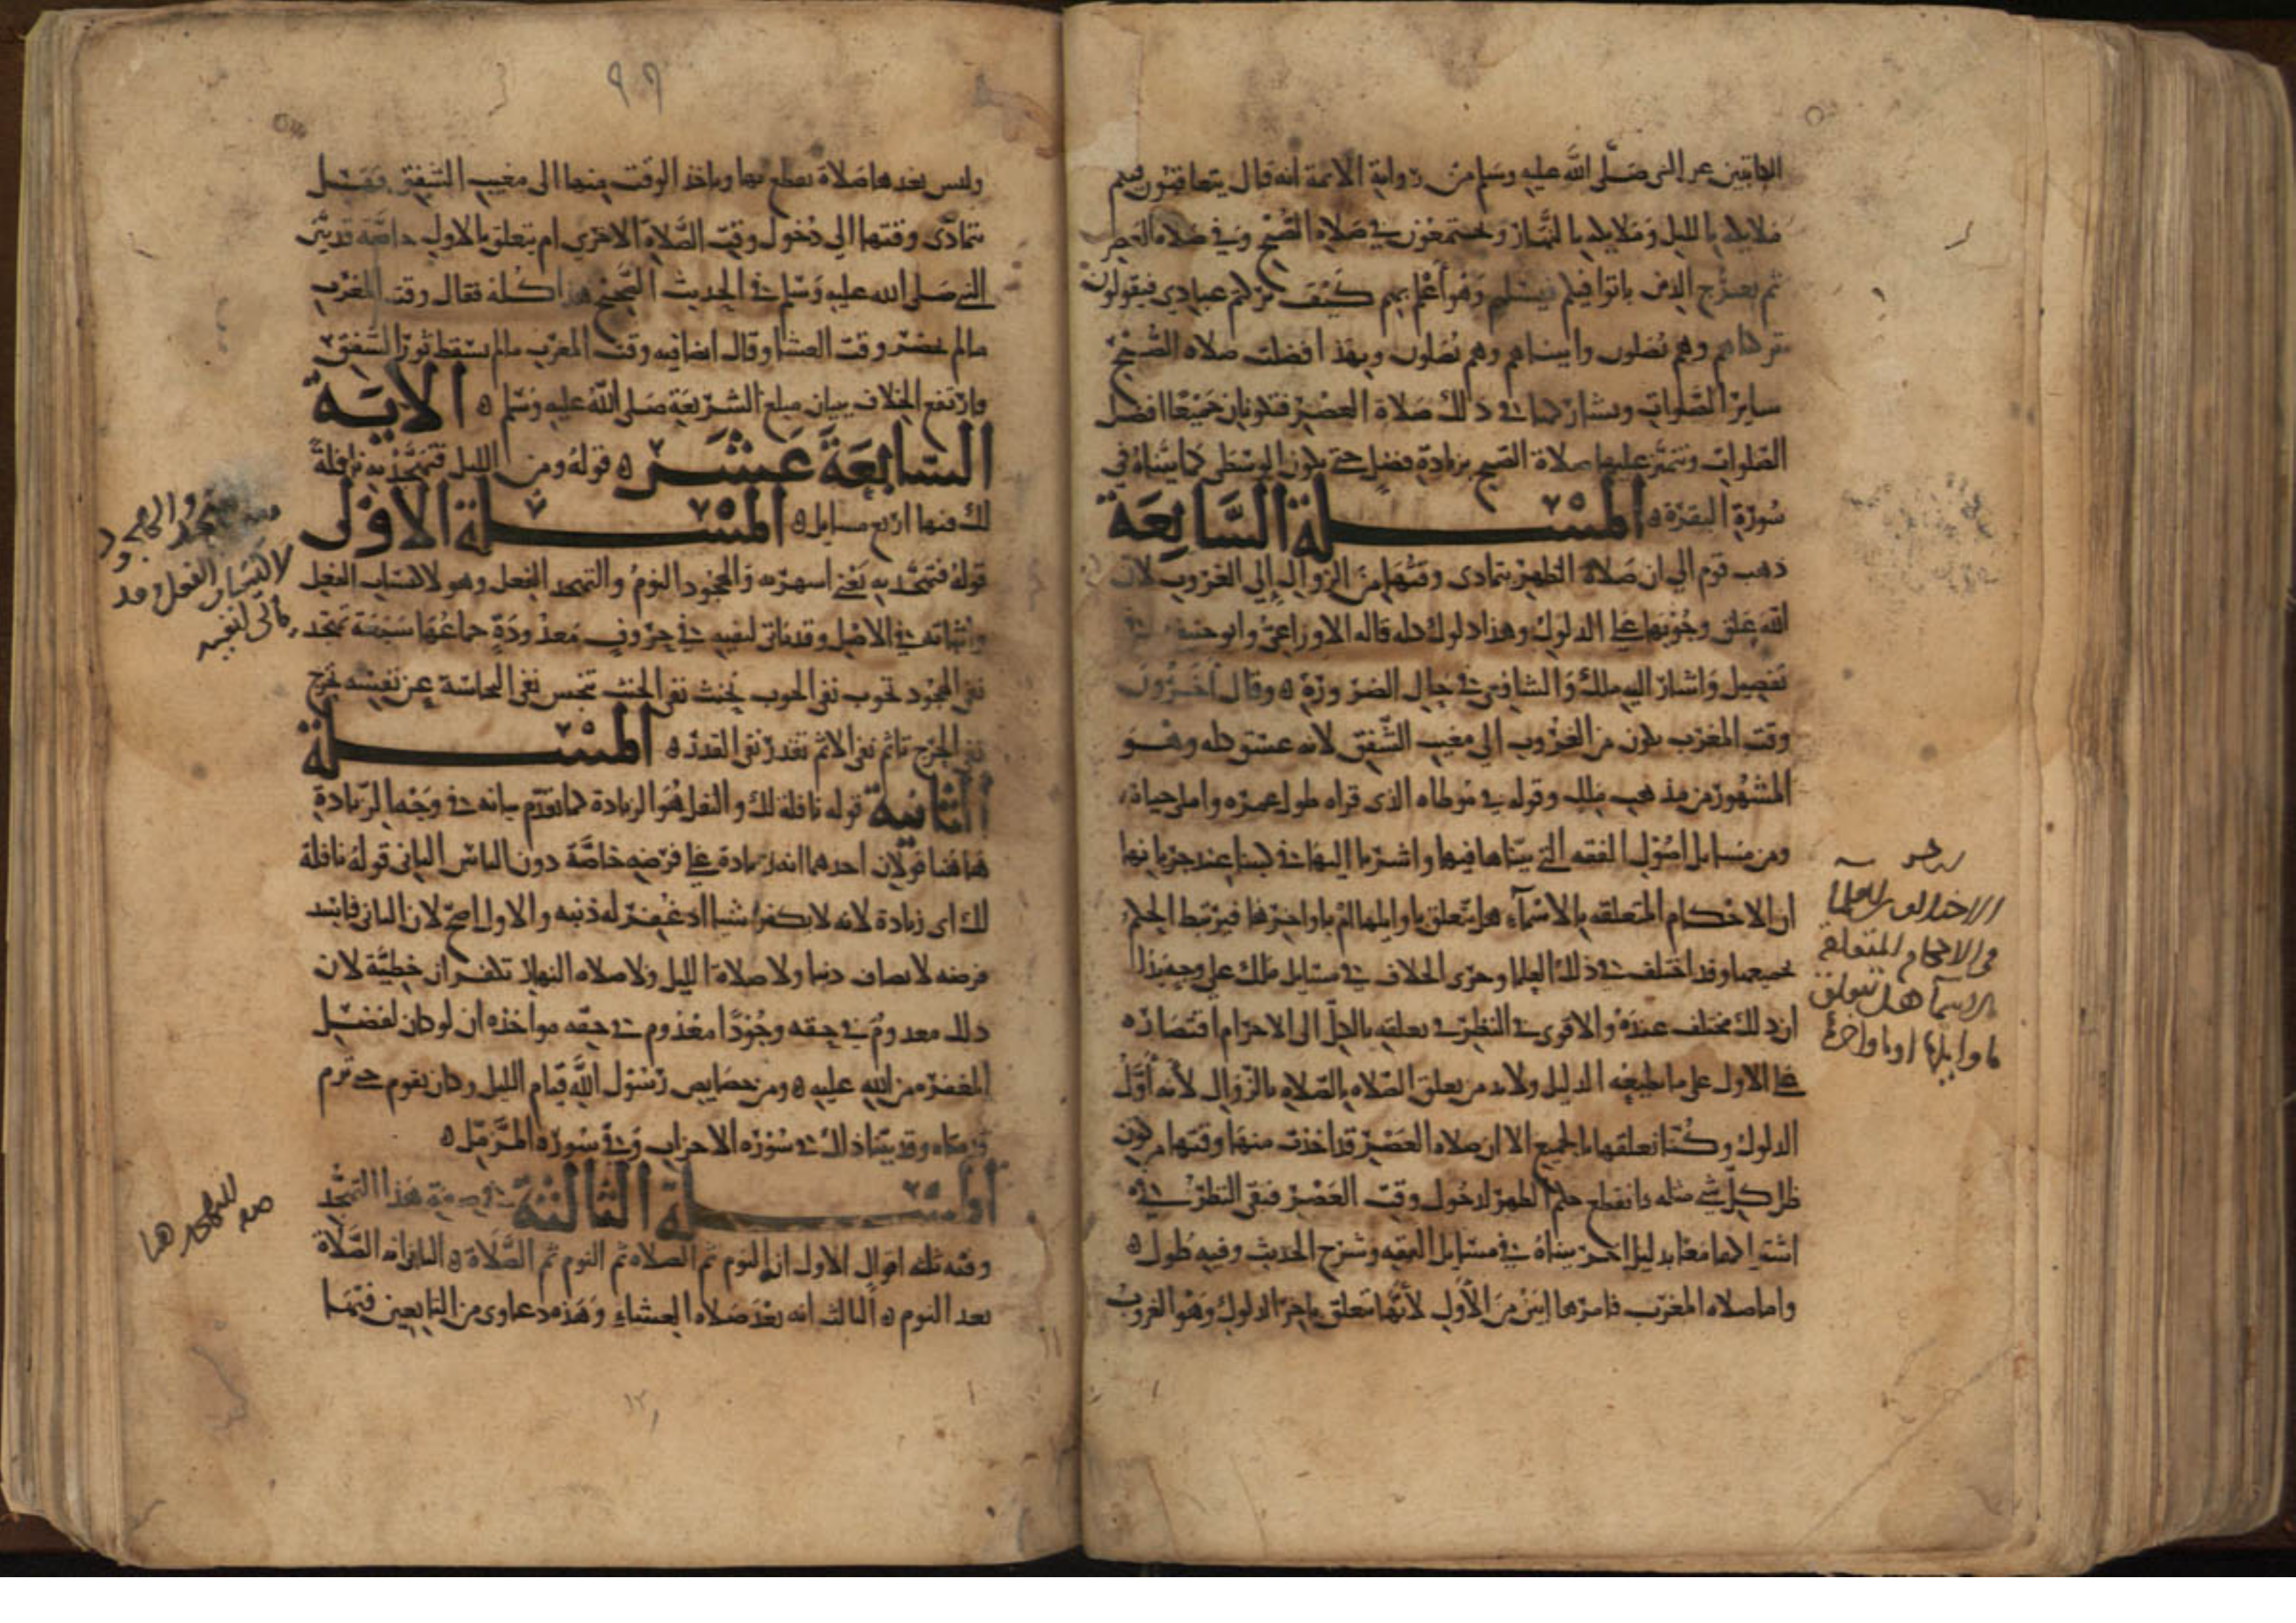 عن النبي صلى الله عليه وسلم من رواية الائمة انه قال يتعاقبون فيكم
ملايكة بالليل وملايكة بالنهار ويجتمعون في صلاة الصبح وفي صلاة العصر
ثم يعرج الذين باتوا فيكم فيسلهم وهو أعلم بهم كيف تركتم عبادي فيقولون
تركناهم وهم يصلون واتيناهم وهم يصلون وبهذا فضلت صلاة الصبح
ساير الصلوات ويشاركها في ذلك صلاة العصر فتكونان جميعا افضل
الصلوات وتتميز عليها صلاة الصبح بزيادة فضل حتى تكون الوسطى كما بيناه في
سورة البقرة ه المسلة السابعة
ذهب قوم الي ان صلاة الظهر يتمادى وقتها من الزوال إلى الغروب لان
الله علق وجوبها على الدلوك وهذا دلوك كله قاله الاوزاعي وابو حنيفة في
تفصيل واشار اليه ملك والشافعي في حال الضرورة ه وقال آخرون
وقت المغرب يكون من الغروب الى مغيب الشفق لانه غسق كله وهو
المشهور من مذهب ملك وقوله في موطاه الذي قراه طول عمره واملى حياته
ومن مسايل اصول الفقه التي بيناها فيها واشرنا اليها في كتبنا عند جريانها
ان الاحكام المتعلقة بالاسمآء هل تتعلق باوايلها ام باواخرها فيرتبط الحكم
بجميعها وقد اختلف في ذلك العلما وجرى الخلاف في مسايل ملك على وجه يدل
ان ذلك مختلف عنده والاقوى في النظر تعلقه بالكل الى الاحرام اقتصاره
على الاول على ما يعطيه الدليل ولابد من تعلق الصلاة بالزوال لأنه أول
الدلوك وكنا نعلقها بالجميع الا ان صلاة العصر قد اخذت منها وقتها من كون
ظل كل شي مثله فانقطع حكم الظهر لدخول وقت العصر فبقى النظر في
اشتراكهما معا بدليل اخر بيناه في مسايل الفقه وشرح الحديث وفيه طول ه
واما صلاة المغرب فامرها ابين من الأول لأنها تتعلق باخر الدلوك وهو الغروب
الاختلاف للعلما
في الاحكام المتعلقة
بالاسمآ هل تتعلق
باوايلها او باواخرها
٩٩
وليس بعدها صلاة تقطع بها وياخذ الوقت منها الى مغيب الشفق فقيل
يتمادى وقتها الي دخول وقت الصلاة الاخري ام يتعلق بالاول خاصة قد بين
النبي صلى الله عليه وسلم في الحديث الصحيح هذا كله فقال وقت المغرب
مالم يحضر وقت العشا وقال ايضا فيه وقت المغرب مالم يسقط ثور الشفق
وارتفع الخلاف ببيان مبلغ الشريعة صلى الله عليه وسلم ه الاية
السابعة عشر ه قوله ومن الليل فتهجد به نافلة
لك فيها اربع مسايل ه المسلة الاولى
قوله فتهجد به يعني اسهر به والهجود النوم والتهجد الفعل وهو لاكتساب الفعل
واثباته في الاصل وقد ياتي لنفيه في حروف معدودة جماعها سبعة تهجد
نفى الهجود تحوب نفى الحوب تحنث نفى الحنث تنجس نفى النجاسة عن نفسه تحرج
نفى الحرج تاثم نفى الاثم تقذر نفى القذر ه المسلة
الثانية قوله نافلة لك والنفل هو الزيادة كما تقدم بيانه في وجه الزيادة
هاهنا قولان احدهما انه زيادة على فرضه خاصة دون الناس الثاني قوله نافلة
لك اى زيادة لانه لا يكفر شيا اذ غفر له ذنبه والاول اصح لان الثاني فاسد
فرضه لا يصادف ذنبا ولا صلاة الليل ولا صلاة النهار تكفران خطيئة لان
ذلك معدوم في حقه وجودا معدوم في حقه مواخذه ان لو كان لفضل
المغفرة من الله عليه ه ومن خصايص رسول الله قيام الليل وكان يقوم حتى ترم
قدماه وقد بينا ذلك في سورة الاحزاب وفي سورة المزمل ه
المسلة الثالثة في صفة هذا التهجد
وفيه ثلثه اقوال الاول انه النوم ثم الصلاة ثم النوم ثم الصلاة ه الثاني انه الصلاة
بعد النوم ه الثالث انه بعد صلاة العشاء وهذه دعاوى من التابعين فيها
معنى تهجد والهجود
لاكتساب الفعل وقد
ياتى لنفيه
صفة التهجد هنا